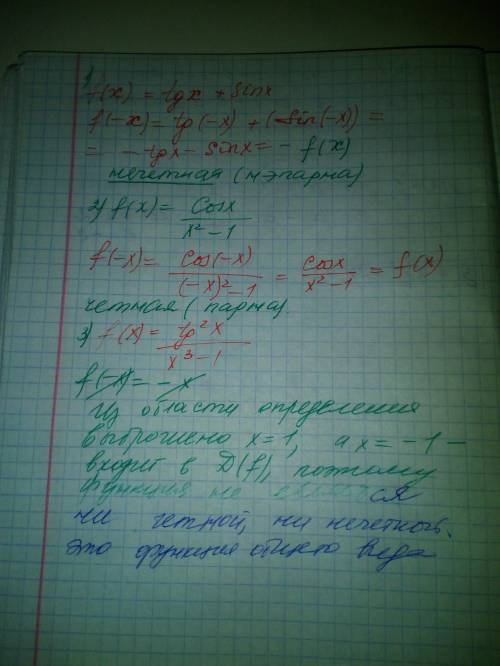 1)
f(x) = tgx + sinx
f(-x) = tg(-x) + (sin(-x)) =
= -tgx - sinx = - f(x)
нечетная (нэпарна)
2) f(x) = cosx / x²-1
f(-x) = cos(-x) / (-x)²-1 = cosx / x²-1 = f(x)
четная (парна)
3) f(x) = tg²x / x³-1
f(-x) = -x
Из области определения
выброшено x=1, а x=-1 -
входит в D(f), поэтому
функция не является
ни четной, ни нечетной.
это функция общего вида